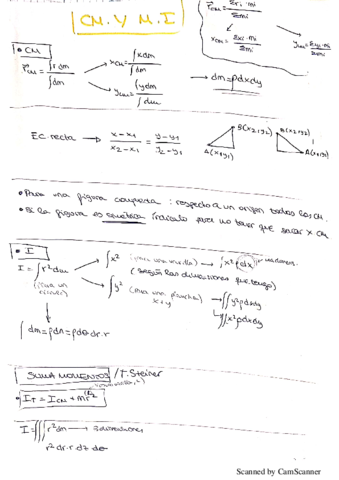 CM. Y M.I
r̄cm = Σri·mi / Σmi
xcm = Σxi·mi / Σmi
ycm = Σyi·mi / Σmi
• CM
r̄cm = ∫r dm / ∫dm
xcm = ∫x dm / ∫dm
ycm = ∫y dm / ∫dm
→ dm = ρdxdy
EC. recta → x-x1 / x2-x1 = y-y1 / y2-y1
B(x2,y2)
A(x1,y1)
B(x2,y2)
A(x1,y1)
• Para una figura compuesta : respecto a un origen todos los CM.
• Si la figura es simétrica para no tener que sacar x CM
• I
I = ∫r² dm
(Para un
∫x² (para una varilla) → ∫x²ρdx
(Según las dimensiones que tenga)
∫y² (para una plancha) → ∫∫y²ρdxdy
x + y
∫∫x²ρdxdy
∫dm = ρdA = ρdθ·dr·r
SUMA MOMENTOS / T. Steiner
IT = ICM + mr²
I = ∫∫∫ r² dm → 3 dimensiones
r² dr·r·dz·dθ
Scanned by CamScanner